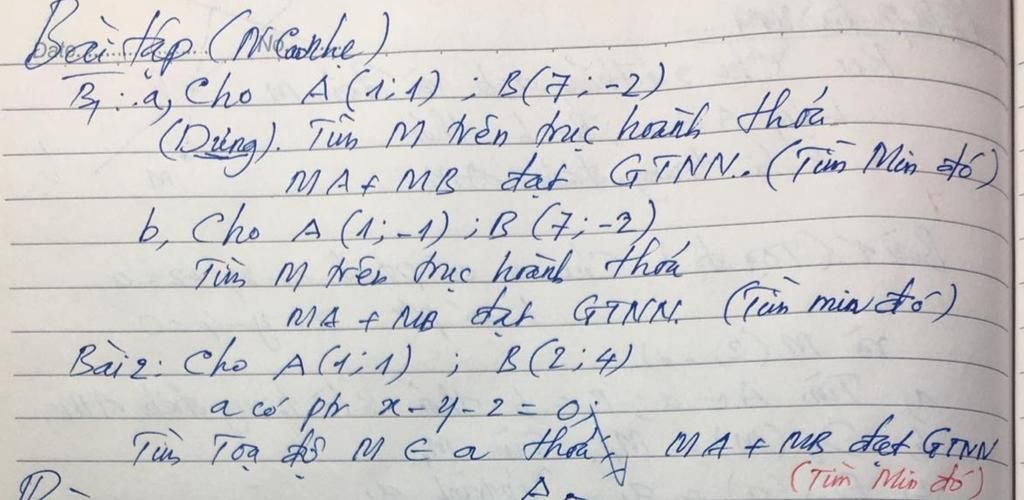 Bài tập (Mcopxki)
B1: a, Cho A(1;1) ; B(7;-2)
(Dũng). Tìm M trên trục hoành thoả
MA + MB đạt GTNN. (Tìm Min đó)
b, Cho A(1;-1) ; B(7;-2)
Tìm M trên trục hoành thoả
MA + MB đạt GTNN. (Tìm min đó)
Bài 2: Cho A(1;1) ; B(2;4)
a có ptr x - y - 2 = 0;
Tìm Toạ độ M ∈ a thoả MA + MB đạt GTNN
(Tìm Min đó)